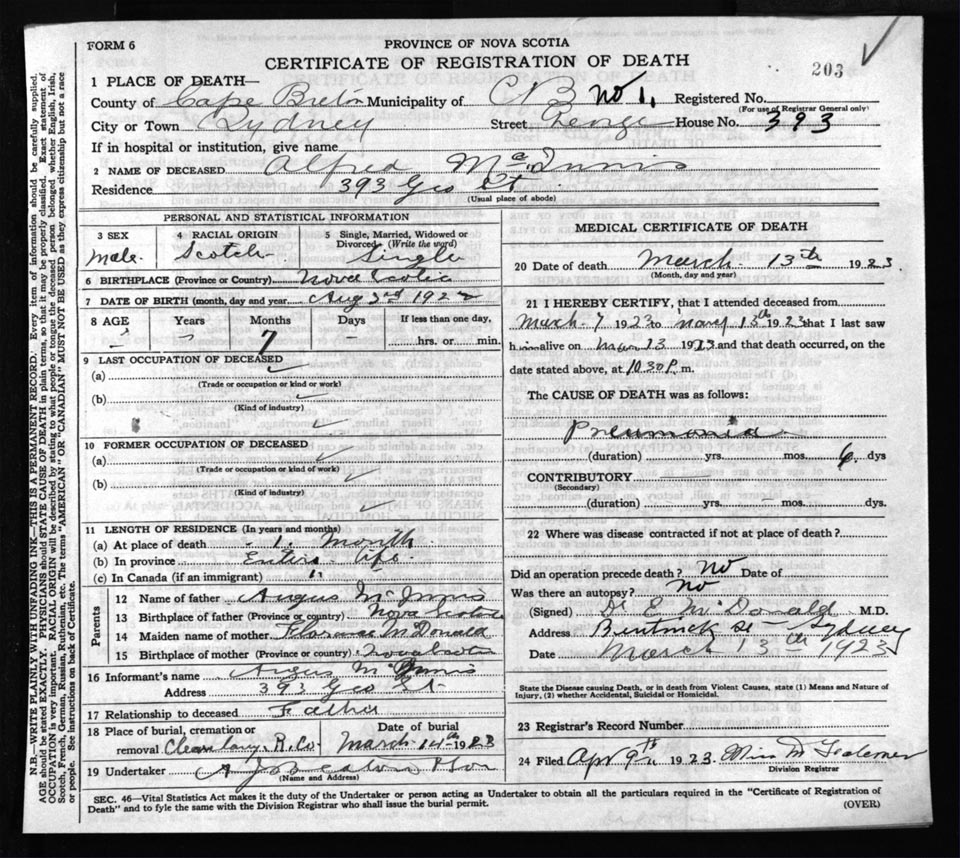 FORM 6
PROVINCE OF NOVA SCOTIA
CERTIFICATE OF REGISTRATION OF DEATH
203
1 PLACE OF DEATH—
County of Cape Breton Municipality of C B No 1, Registered No.
(For use of Registrar General only)
City or Town Sydney Street George House No. 393
If in hospital or institution, give name
2 NAME OF DECEASED Alfred McInnis
Residence 393 Geo St.
(Usual place of abode)
PERSONAL AND STATISTICAL INFORMATION
3 SEX
Male
4 RACIAL ORIGIN
Scotch
5 Single, Married, Widowed or Divorced (Write the word)
Single
6 BIRTHPLACE (Province or Country) Nova Scotia
7 DATE OF BIRTH (month, day and year) Aug 1922
8 AGE Years Months Days If less than one day,
7 hrs. or min.
9 LAST OCCUPATION OF DECEASED
(a)
(Trade or occupation or kind or work)
(b)
(Kind of industry)
10 FORMER OCCUPATION OF DECEASED
(a)
(Trade or occupation or kind of work)
(b)
(Kind of industry)
11 LENGTH OF RESIDENCE (In years and months)
(a) At place of death 1 Month
(b) In province Entire life
(c) In Canada (if an immigrant) "
Parents
12 Name of father Angus McInnis
13 Birthplace of father (Province or country) Nova Scotia
14 Maiden name of mother Florence McDonald
15 Birthplace of mother (Province or country) Nova Scotia
16 Informant's name Angus McInnis
Address 393 Geo St.
17 Relationship to deceased Father
18 Place of burial, cremation or removal R. Co
Date of burial March 14th 1923
19 Undertaker A J Beaton &
(Name and Address)
MEDICAL CERTIFICATE OF DEATH
20 Date of death March 13th 1923
(Month, day and year)
21 I HEREBY CERTIFY, that I attended deceased from
March 7 1923 to 13th 1923 that I last saw
him alive on 13 1923 and that death occurred, on the
date stated above, at 10.30 P. m.
The CAUSE OF DEATH was as follows:
Pneumonia
(duration) yrs. mos. 6 dys
CONTRIBUTORY
(Secondary)
(duration) yrs. mos. dys.
22 Where was disease contracted if not at place of death?
Did an operation precede death? No Date of
Was there an autopsy? No
(Signed) D. E McDonald M.D.
Address Bentinck St Sydney
Date March 13th 1923
State the Disease causing Death, or in death from Violent Causes, state (1) Means and Nature of Injury, (2) whether Accidental, Suicidal or Homicidal.
23 Registrar's Record Number
24 Filed Apr 9th 1923
Division Registrar
SEC. 46—Vital Statistics Act makes it the duty of the Undertaker or person acting as Undertaker to obtain all the particulars required in the "Certificate of Registration of
Death" and to fyle the same with the Division Registrar who shall issue the burial permit.
(OVER)
N.B.—WRITE PLAINLY WITH UNFADING INK—THIS IS A PERMANENT RECORD. Every item of information should be carefully supplied.
AGE should be stated EXACTLY. PHYSICIANS should STATE CAUSE OF DEATH in plain terms, so that it may be properly classified. Exact statement of
OCCUPATION is very important. RACIAL ORIGIN will be described by stating to what people or tongue the deceased person belonged whether English, Irish,
Scotch, French, German, Russian, Ruthenian, etc. The terms "AMERICAN" OR "CANADIAN" MUST NOT BE USED as they express citizenship but not a race
or people. See instructions on back of Certificate.